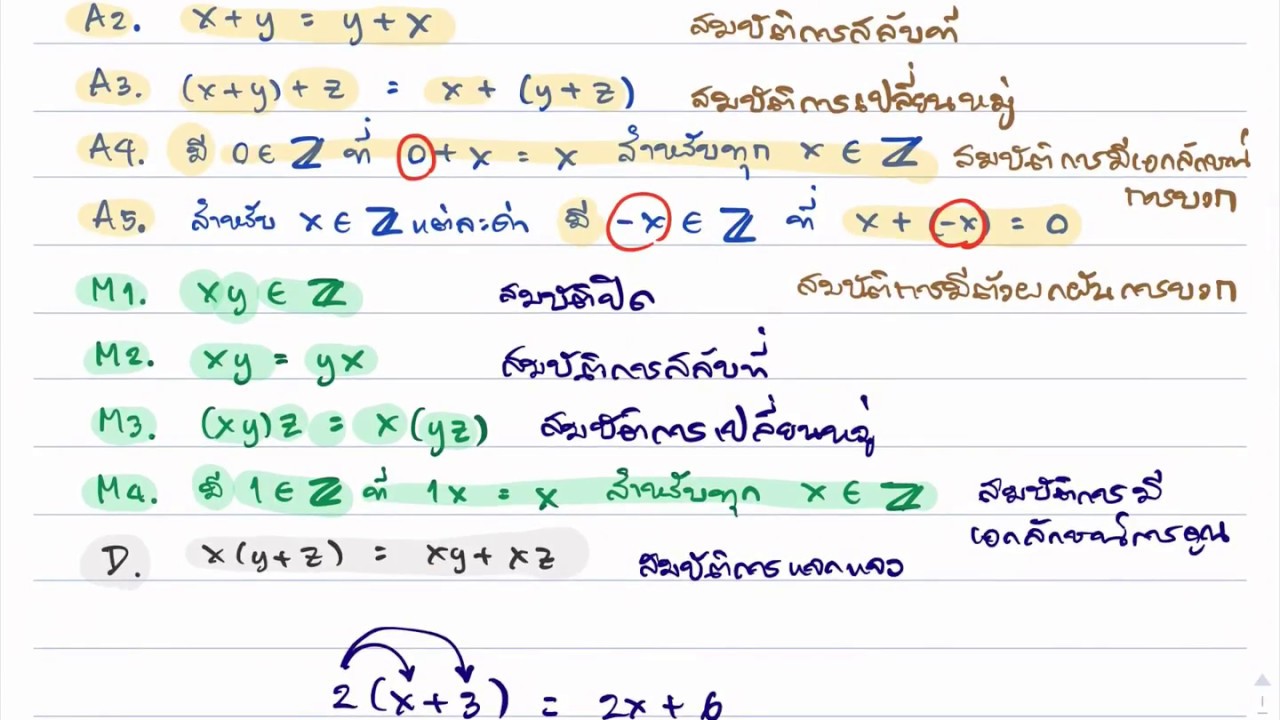 A2. x+y = y+x สมบัติการสลับที่
A3. (x+y)+z = x+(y+z) สมบัติการเปลี่ยนหมู่
A4. มี 0∈ℤ ที่ 0+x = x สำหรับทุก x∈ℤ สมบัติการมีเอกลักษณ์
การบวก
A5. สำหรับ x∈ℤ แต่ละตัว มี -x∈ℤ ที่ x+(-x) = 0
สมบัติการมีตัวผกผันการบวก
M1. xy∈ℤ สมบัติปิด
M2. xy = yx สมบัติการสลับที่
M3. (xy)z = x(yz) สมบัติการเปลี่ยนหมู่
M4. มี 1∈ℤ ที่ 1x = x สำหรับทุก x∈ℤ สมบัติการมี
เอกลักษณ์การคูณ
D. x(y+z) = xy+xz สมบัติการแจกแจง
2(x+3) = 2x+6